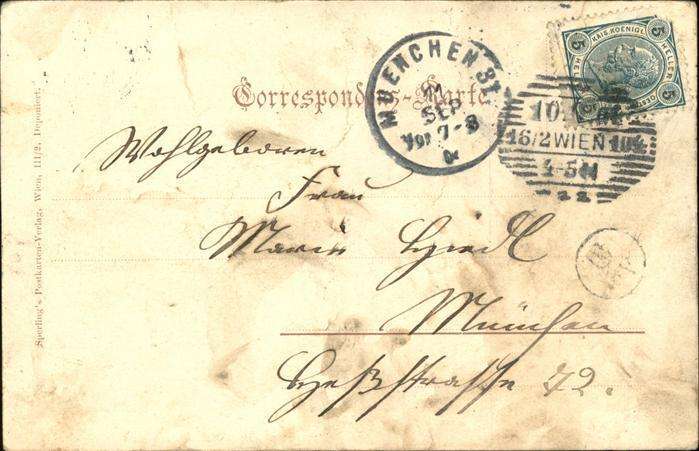 Correspondenz-Karte
KAIS. KOENIGL.
5 HELLER 5
MUENCHEN 31.
11
SEP
7-8
10.
16/2 WIEN 104
4-5N
Wohlgeboren
Frau
Marie
München
Heßstrasse 42.
Sperling's Postkarten-Verlag, Wien, III/2, Deponiert.